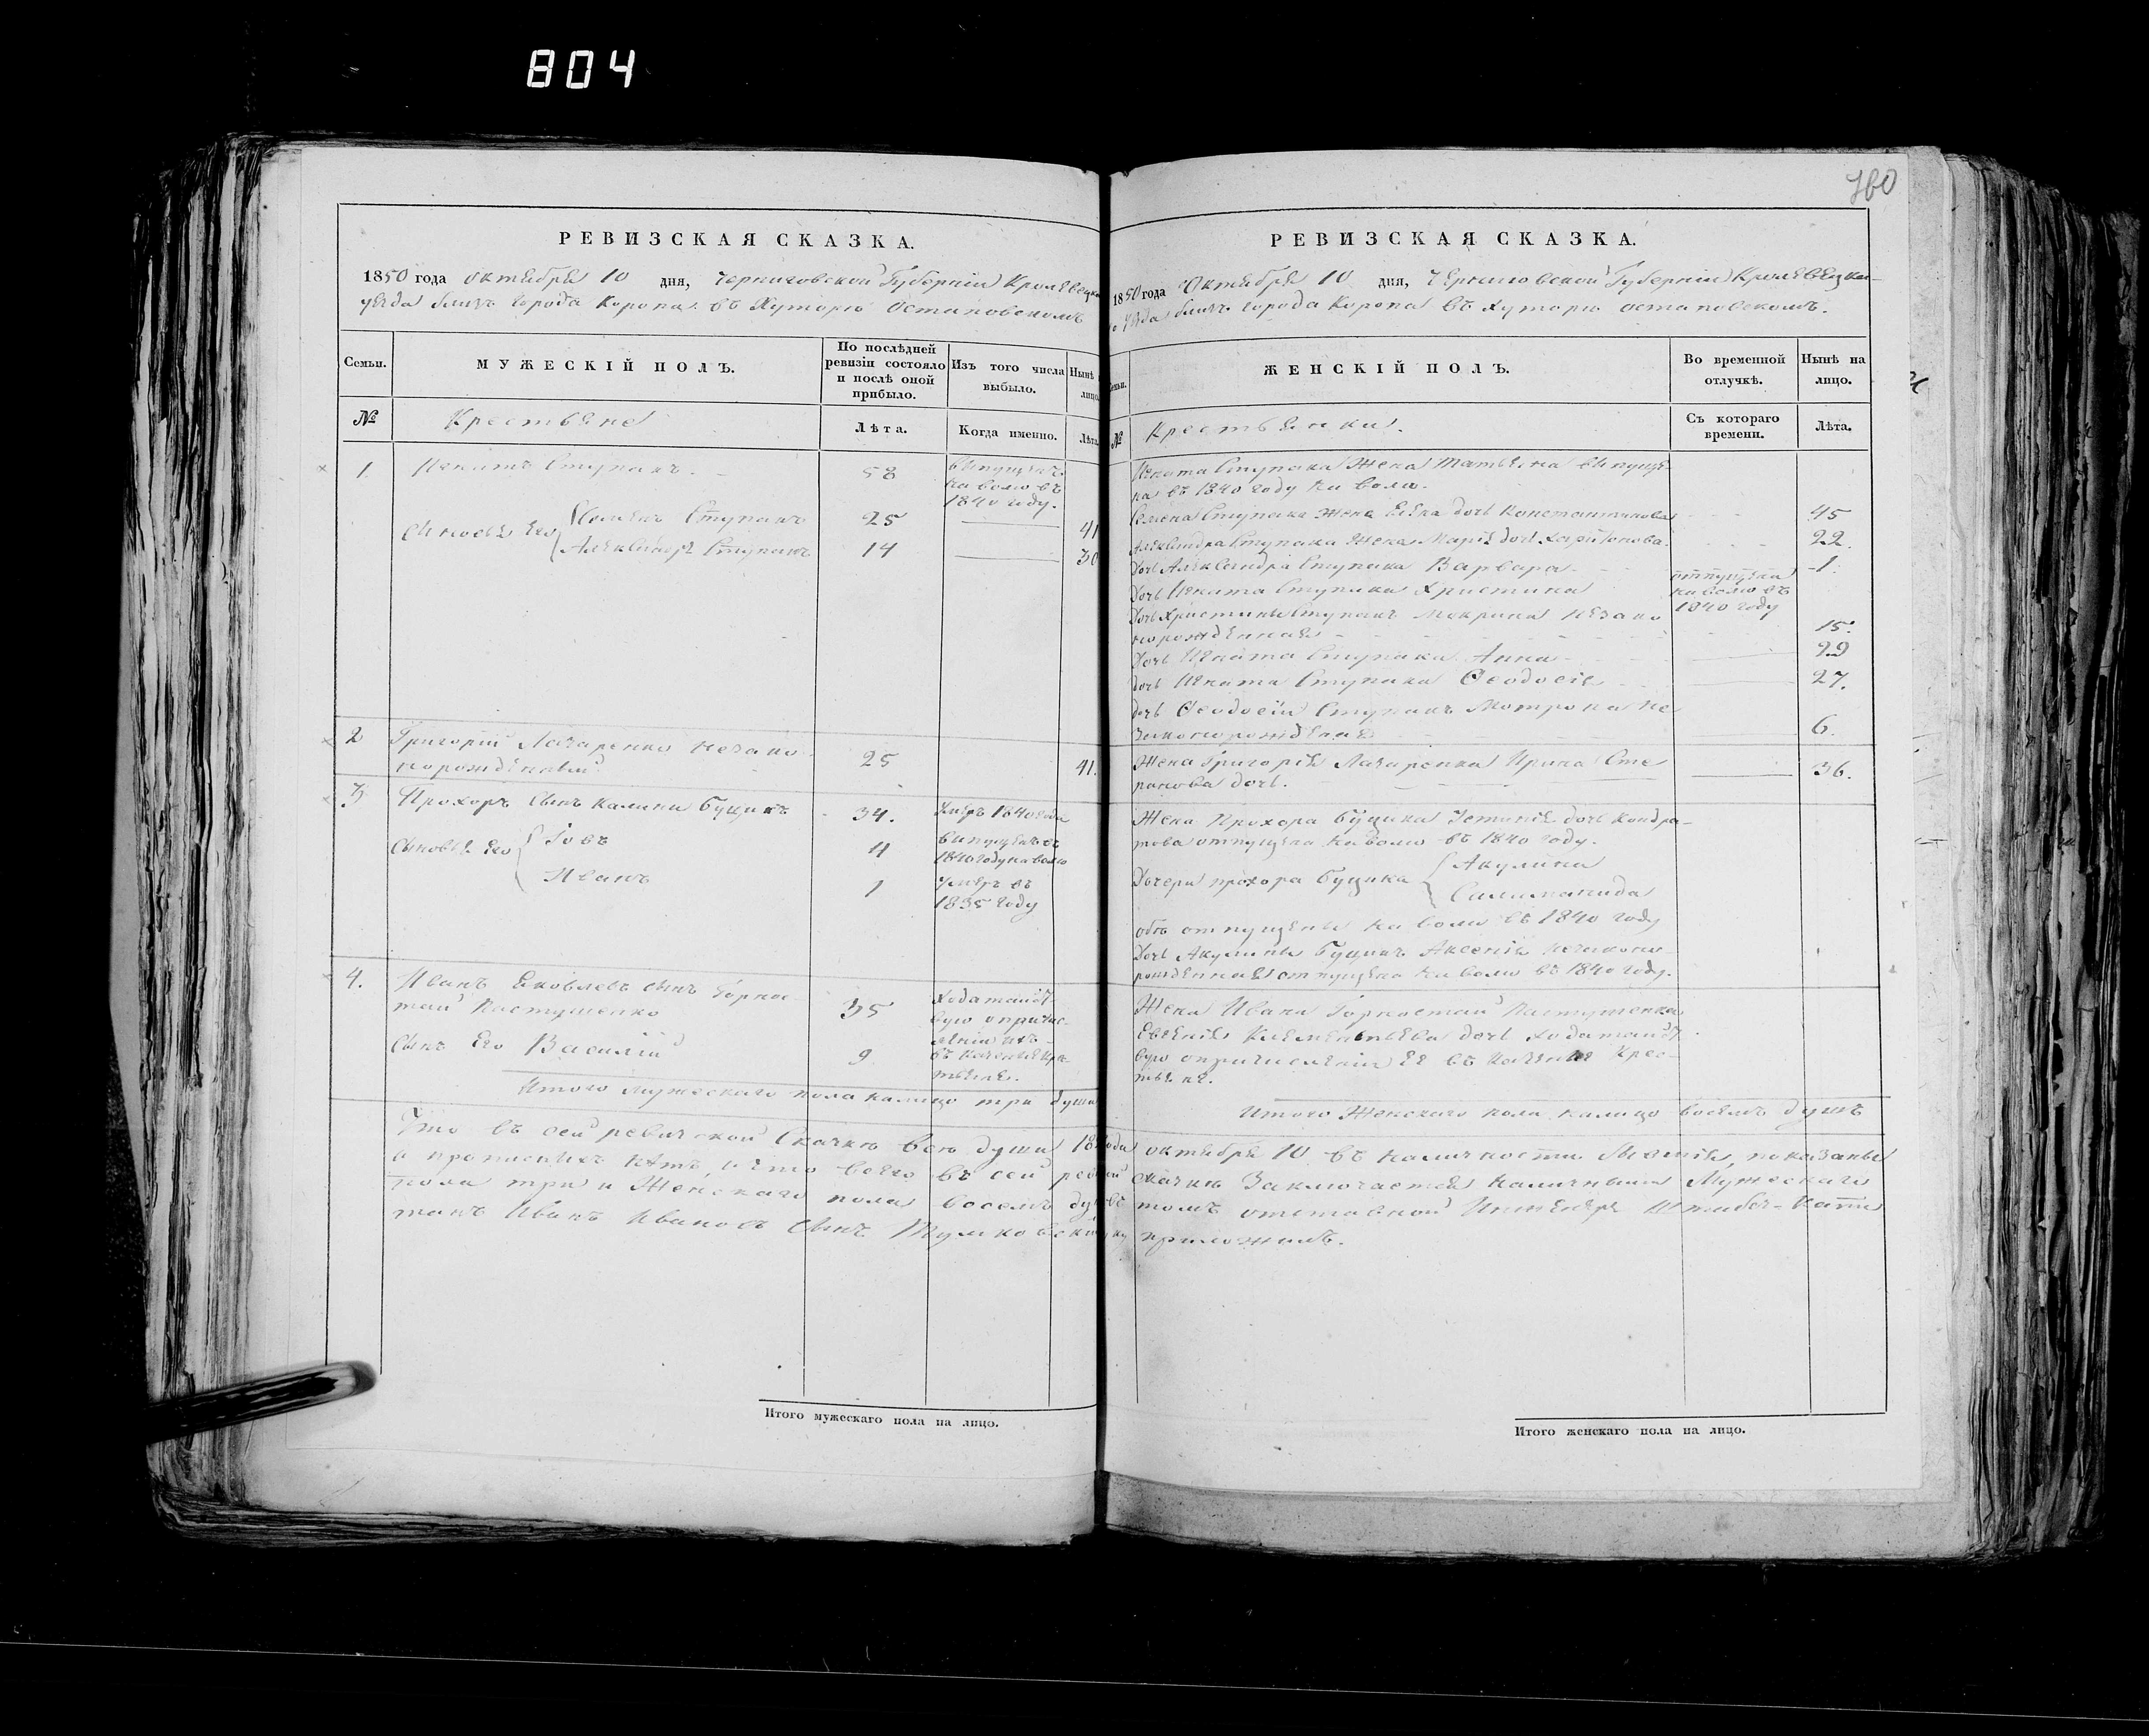 804
РЕВИЗСКАЯ СКАЗКА.
1850 года октября 10 дня, Черниговской Губернии Кролевецка
уезда близъ города Коропа въ Хуторѣ Остаповскомъ
Семьи.
МУЖЕСКІЙ ПОЛЪ.
По послѣдней ревизіи состояло и послѣ оной прибыло.
Изъ того числа выбыло.
Нынѣ лицо
№
Крестьяне
Лѣта.
Когда именно.
Лѣта
1. Игнатъ Ступакъ. 58 выпущенъ
на волю въ
1840 году.
Сыновья Его
Семенъ Ступакъ 25 41
Александръ Ступакъ 14 30
2 Григорій Лазаренко незако
норожденный 25 41.
3 Прохоръ сынъ Калини Буцикъ 34. Умеръ 1840 года
Сыновья Его
Іовъ 11 выпущенъ въ
1840 году на волю
Иванъ 1 Умеръ въ
1835 году
4. Иванъ Яковлевъ сынъ Горнос-
тай Пастушенко 35
Сынъ Его Василій 9
Итого мужескаго пола налицо три души
Что въ сей ревизской Сказкѣ всѣ души 18
и прописныхъ нѣтъ, и что всего въ сей
пола три и Женскаго пола восемъ
танъ Иванъ Ивановъ Сынъ
Итого мужескаго пола на лицо.
760
РЕВИЗСКАЯ СКАЗКА.
1850 года Октября 10 дня, Черниговской Губерніи Кролевецка-
го уезда близъ города Коропа въ хуторѣ остаповскомъ.
Семьи.
ЖЕНСКІЙ ПОЛЪ.
Во временной отлучкѣ.
Нынѣ на лицо.
№
Крестьянки.
Съ котораго времени.
Лѣта.
Игната Ступака Жена Татьяна выпуще-
на въ 1840 году на волю.
Семена Ступака Жена Елена дочь Константинова 45
Александра Ступака Жена Марія дочь Харитонова. 22.
Дочь Александра Ступака Варвара 1.
Дочь Игната Ступака Христина отпущена
на волю въ
1840 году
Дочь Христины Ступакъ Макрина незако
норожденная 15.
Дочь Игната Ступака Анна 29
дочь Игната Ступака Феодосія 27.
дочь Феодосіи Ступакъ Мотрона не
законорожденая 6.
Жена Григорія Лазаренка Ирина Сте
панова дочь. 36.
Жена Прохора Буцика Устинія дочь Кондра-
това отпущена на волю въ 1840 году.
Дочери прохора Буцика
Акулина
Салиманида
обѣ отпущены на волю въ 1840 году
Дочь Акулины Буцикъ Аксенія незаконо
рожденная отпущена на волю въ 1840 году.
Жена Ивана Горностая Пастушенка
Евгенія дочь
Итого Женскаго пола налицо восемъ душъ
года октября 10 въ наличности показаны
сказкѣ Заключается Наличныхъ Мужескаго
томъ отставной Инженеръ Штабсъ-Капи
приложилъ.
Итого женскаго пола на лицо.